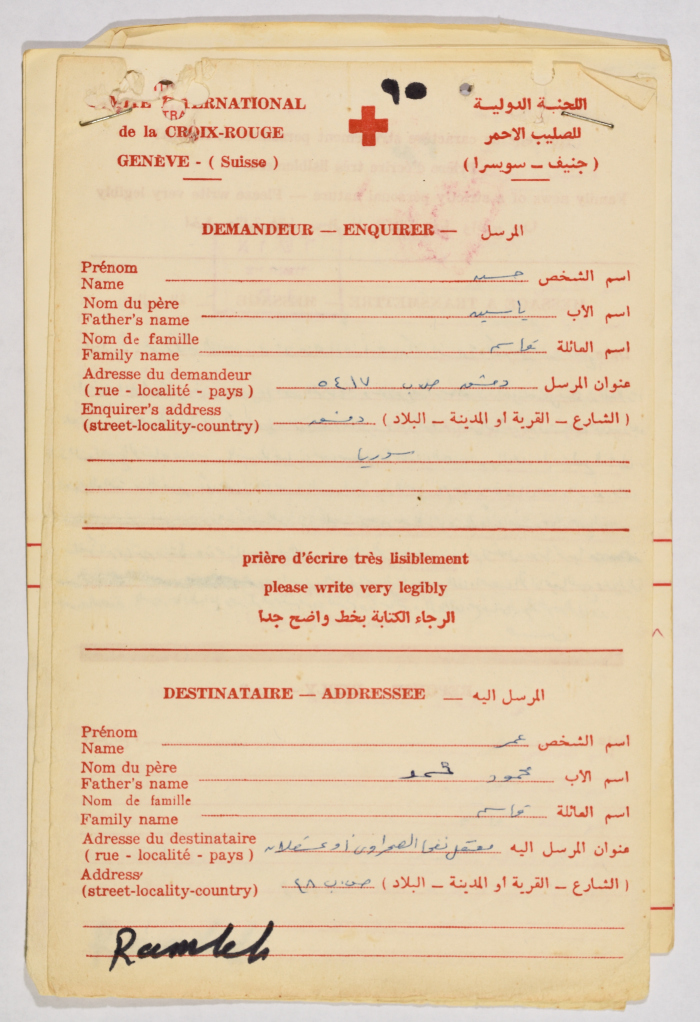 INTERNATIONAL
de la CROIX-ROUGE
GENÈVE - ( Suisse )
٩٥
اللجنة الدولية
للصليب الاحمر
( جنيف ــ سويسرا )
DEMANDEUR — ENQUIRER — المرسل
Prénom
Name حسين اسم الشخص
Nom du père
Father's name ياسين اسم الأب
Nom de famille
Family name قاسم اسم العائلة
Adresse du demandeur
( rue - localité - pays ) عنوان المرسل دمشق ص.ب ٥٤١٧
Enquirer's address
(street-locality-country) ( الشارع ــ القرية أو المدينة ــ البلاد ) دمشق
سوريا
prière d'écrire très lisiblement
please write very legibly
الرجاء الكتابة بخط واضح جدا
DESTINATAIRE — ADDRESSEE — المرسل اليه
Prénom
Name عمر اسم الشخص
Nom du père
Father's name اسم الأب محمود محمد
Nom de famille
Family name قاسم اسم العائلة
Adresse du destinataire
( rue - localité - pays ) عنوان المرسل اليه معتقل نفحا الصحراوي أو عسقلان
Address
(street-locality-country) ( الشارع ــ القرية أو المدينة ــ البلاد ) ص.ب ٤٨
Ramleh